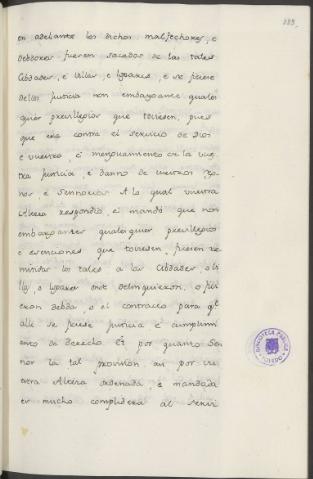 189.
en adelante los dichos malfechores, e
debdores fueren sacados de las tales
Cibdades, e villas, e lugares, e se ficiere
dellos justicia non embargante quales
quier previllegios que toviesen, pues
que era contra el servicio de Dios
e vuestro, e menguamiento en la vues
tra justicia, e danno de vuestros
nos, e Sennorios A lo qual vuestra
Alteza respondió, e mandó que non
embargantes qualesquier previllegios
e esenciones que toviesen, fuesen re
mitidos los tales a las Cibdades, o vi
llas, o lugares onde delinquieron, o ficie
ron debda, o el contracto para que
alli se ficiese justicia e cumplimi
ento de derecho Et por quanto Se
nor la tal provision asi por vu
estra Alteza ordenada, e mandada
es mucho complidera al servi
BIBLIOTECA PUBLICA